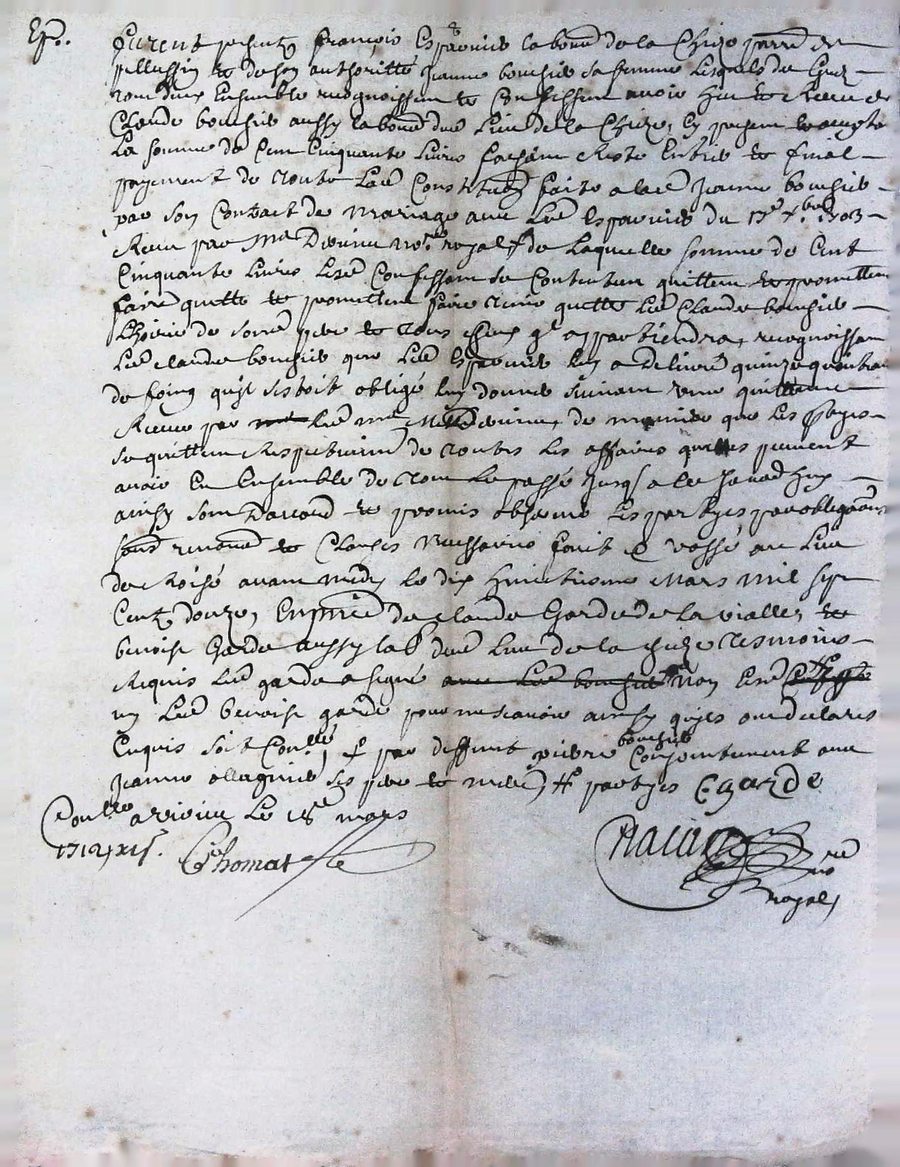 Exp.
furent presentz françois Esparvier labour de la Chize parre de
pellussin et de son authoritté Jeanne bouchier sa femme lesquels de Grez
Ensemble recognoissent et Confessent avoir heu et Receu de
Claude bouchier aussy labour dud lieu de la Chize, Cy present et acepta
La somme de Cent Cinquante livres faisant Reste Entier et final
payement de toute lad Constituon faite a lad Jeanne bouchier
par son Contract de mariage avec led Esparvier du 17e xbre 1703
Receu par Me no.re royal de Laquelle somme de Cent
Cinquante livres lesd Confessans se Contentent quittent et promettent
faire quitte et promettent faire tenir quitte led Claude bouchier
Lhoirie de sond pere et tous Ceux ql appartiendra, recognoissant
led claude bouchier que led Esparvier luy a delivré quinze quintaux
de foing quil sestoit obligé luy donner suivant une quittance
Receue par led me de maniere que les partyes
se quittent Respectivement de toutes les affaires quelles peuvent
avoir Eu Ensemble de tout le passé Jusq a ce Jourdhuy
ainsy sont Daccord et promis observer les partyes par obligaons
sous renonon et Clauses necessaires fait et passé au lieu
de avant midy le dix huictiesme Mars mil sept
Cent douze, En presce de claude Garde de la vialle, et
benoist Garde aussy lab dud lieu de la chize tesmoins
Requis led garde a signé avec led bouchier non lesd
ny led benoist garde pour ne scavoir ainsy quils ont declarés
Enquis soit Conllé, par deffunt pierre bouchier Conjointement avec
Jeanne ollagnier ses pere et mere, partyes C garde
Conllé a le 18e mars
1712,
Thomas
no.re
royal,